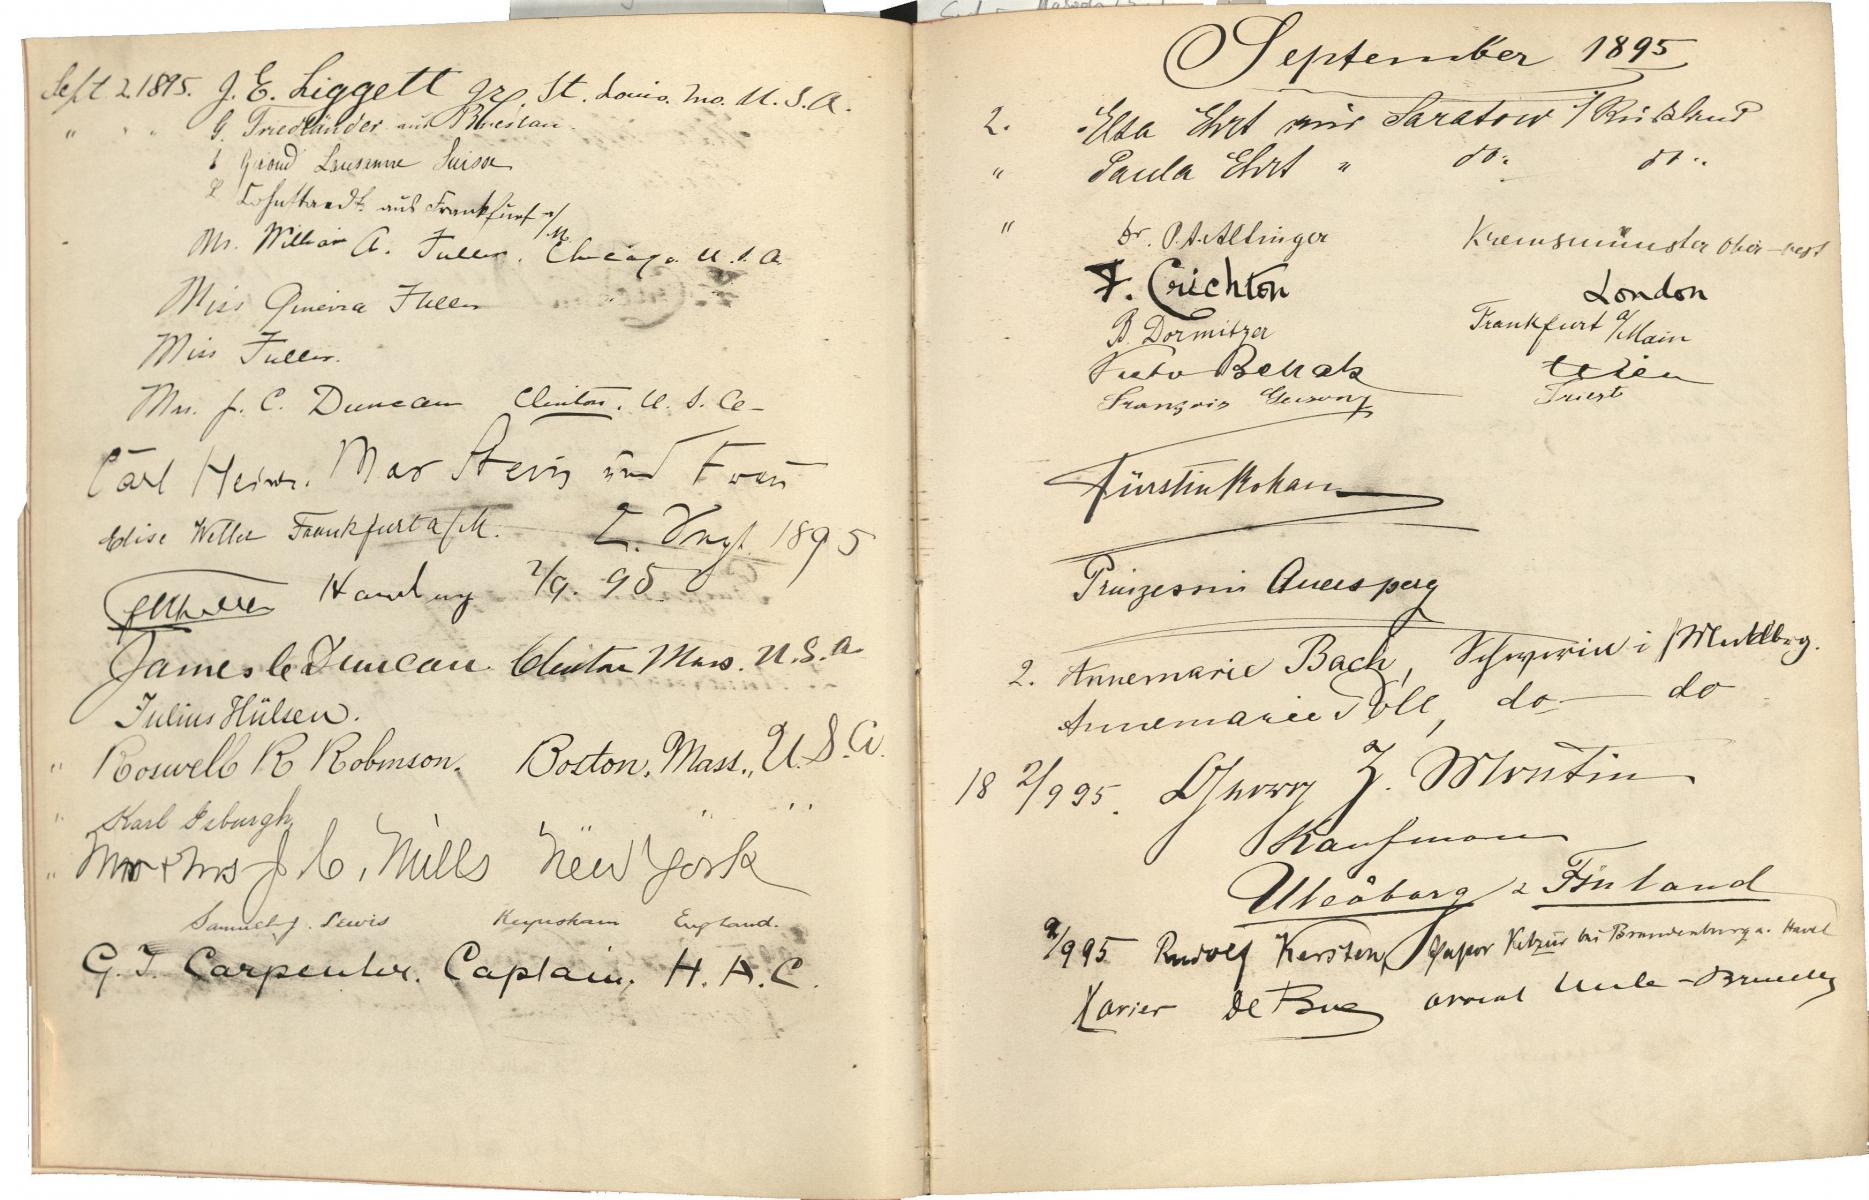 Sept 2. 1895. J. E. Liggett Jr. St. Louis. Mo. U. S. A.
" " " G. Friedländer aus Breslau.
Lausanne Suisse
aus Frankfurt a/M
Mr. William A. Fuller. Chicago. U. S. A.
Miss Ginevra Fuller
Miss Fuller.
Mrs. J. C. Duncan Clinton. U. S. A
Carl Heinr. Max Stern und Frau
Elise Weller Frankfurt a/M. 2. Sept. 1895
Hamburg 2/9. 95
James C Duncan. Clinton Mass. U.S.A
Julius Hülsen.
" Roswell R Robinson. Boston, Mass., U.S.A.
" Karl Isburgh " "
" Mr + Mrs J. C. Mills New York
Samuel J. Lewis Keynsham England.
G. T. Carpenter. Captain, H. A. C.
September 1895
2. Elsa Ehrt aus Saratow / Rußland
" Paula Ehrt " do. do.
" Dr. P. A. Altinger Kremsmünster Ober-
F. Crichton London
B. Dormitzer Frankfurt a/Main
Bellak Wien
François Triest
Fürstin Rohan
Prinzessin Auersperg
2. Annemarie Bach, Schwerin i/Mecklbrg.
Annemarie Poll, do do
18 2/9 95. Georg Z. Montin
Kaufmann
Uleåborg Finland
2/9 95 Rudolf Kersten, Pastor Ketzür bei Brandenburg a. Havel
Xavier De Bue avocat Uccle-Bruxelles